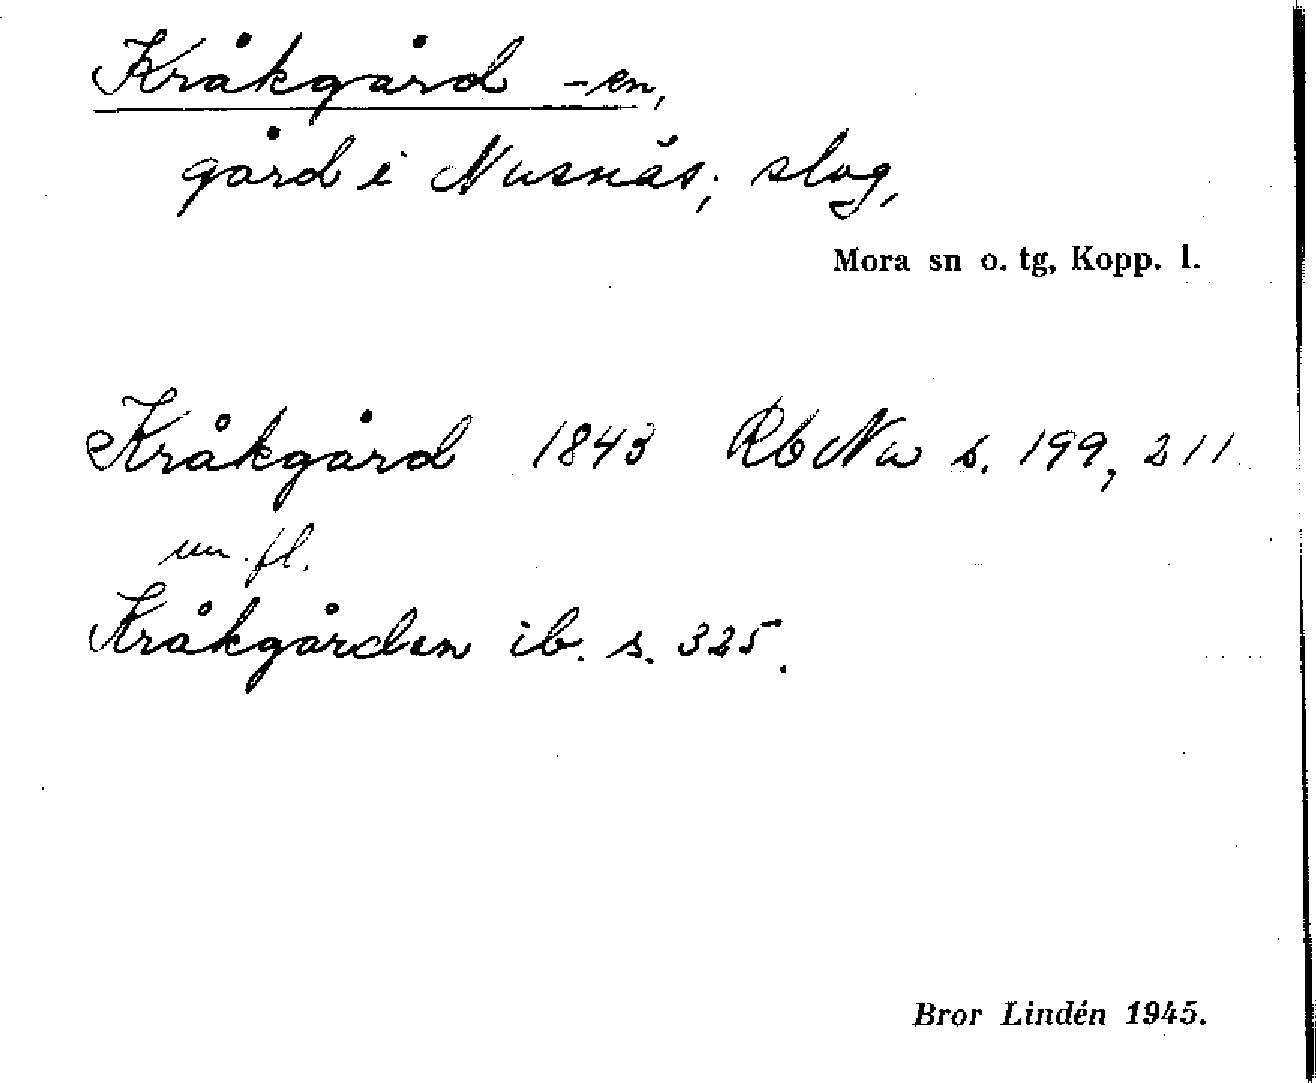 Kråkgård -en,
gård i Nusnäs; slog,
Mora sn o. tg, Kopp. l.
Kråkgård 1843 Rb Na s. 199, 211
m. fl.
Kråkgården ib. s. 325.
Bror Lindén 1945.